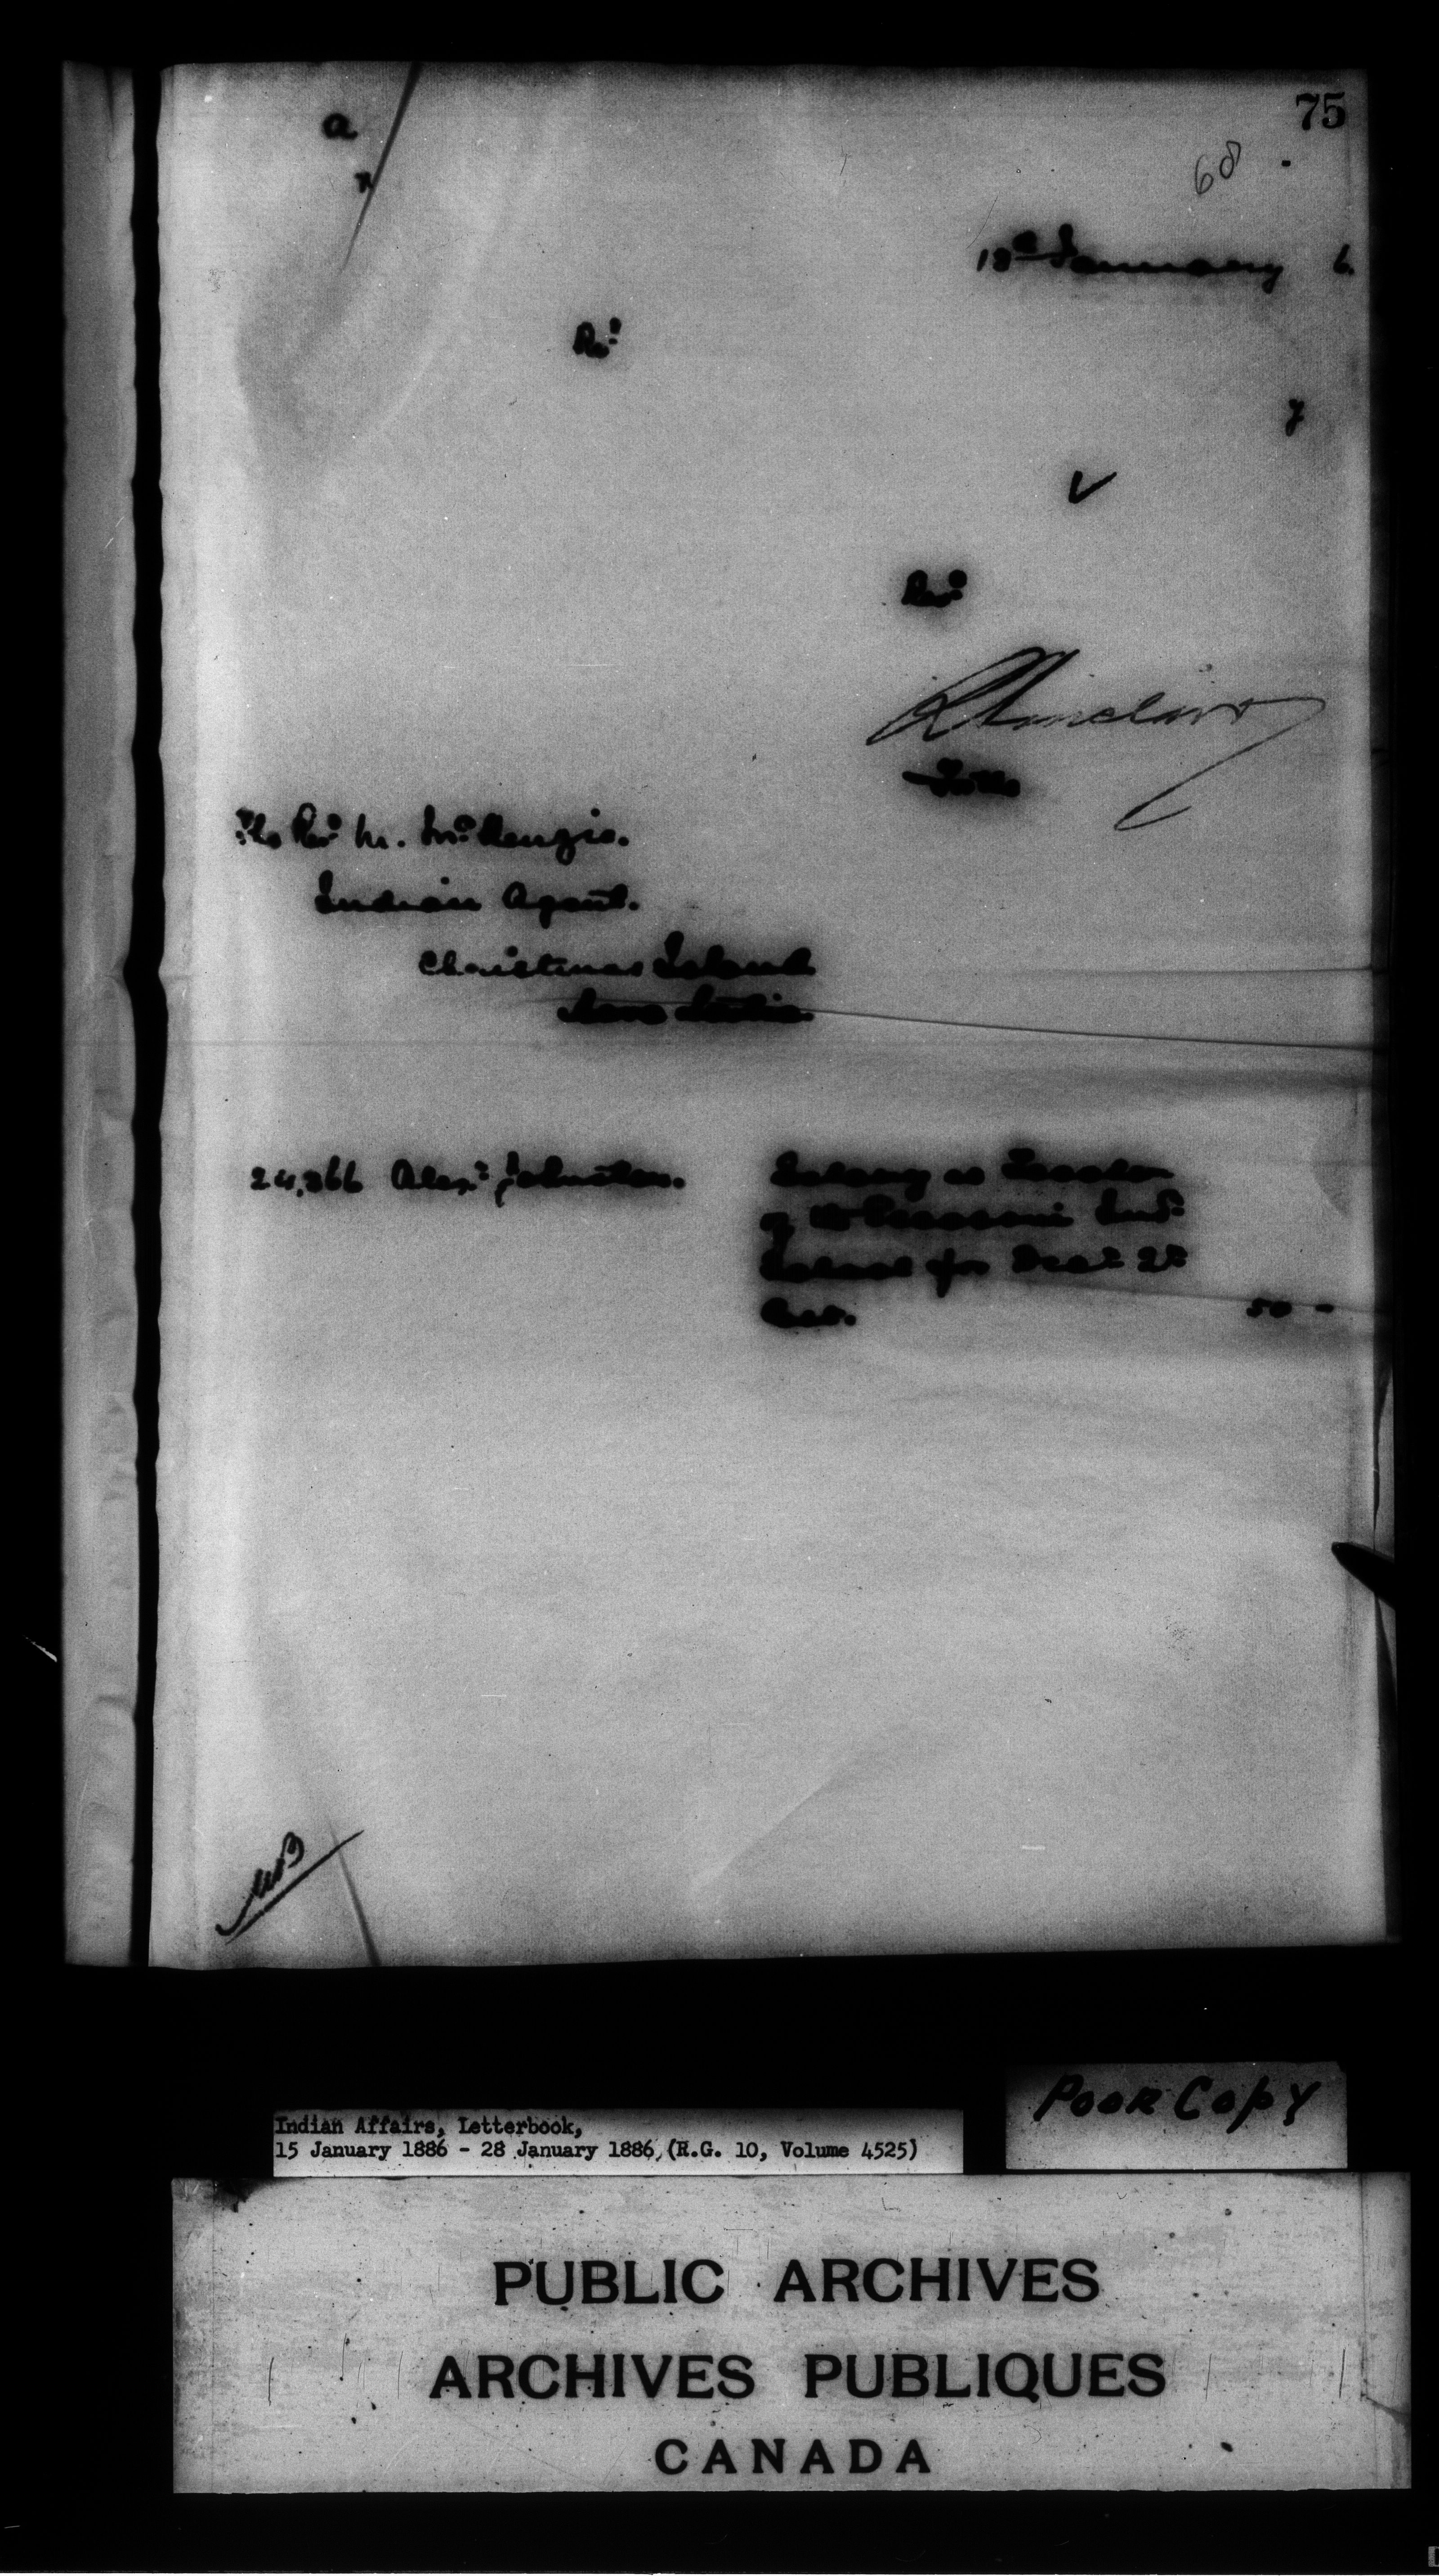 75
68
a
n
18th January 6.
Revd
y
Revd
R Sinclair
The Revd M. McKenzie.
Indian Agent.
Christmas Island
Nova Scotia.
24,366 Alexr Johnston. Salary as Teacher
of the Eskasoni Indn
School for Decr Qr
1885. 50 -
Indian Affairs, Letterbook,
15 January 1886 - 28 January 1886, (R.G. 10, Volume 4525)
POOR COPY
PUBLIC ARCHIVES
ARCHIVES PUBLIQUES
CANADA